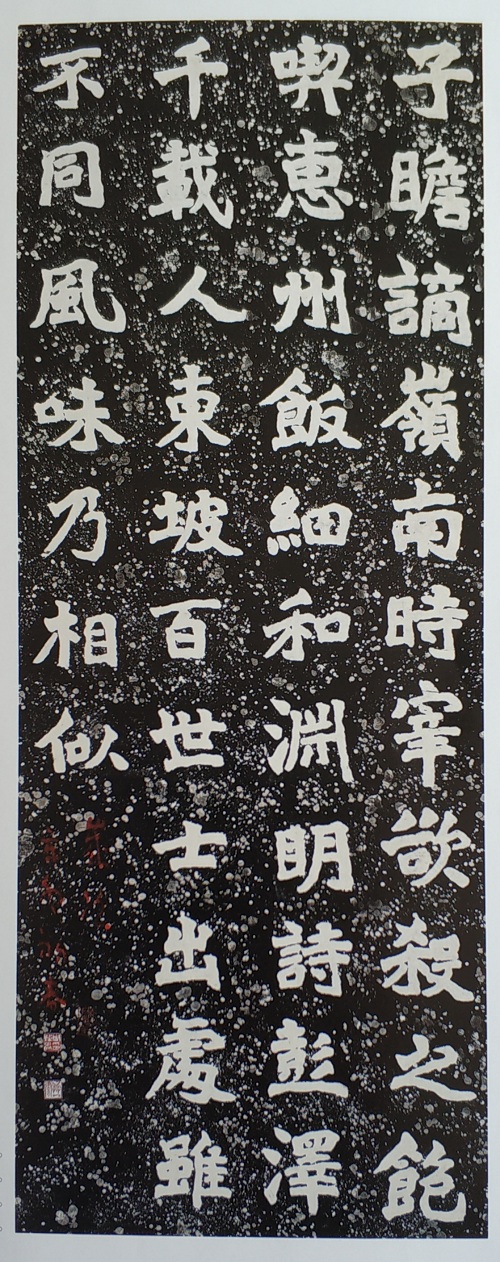 子瞻謫嶺南時宰欲殺之飽
喫惠州飯細和淵明詩彭澤
千載人東坡百世士出處雖
不同風味乃相似